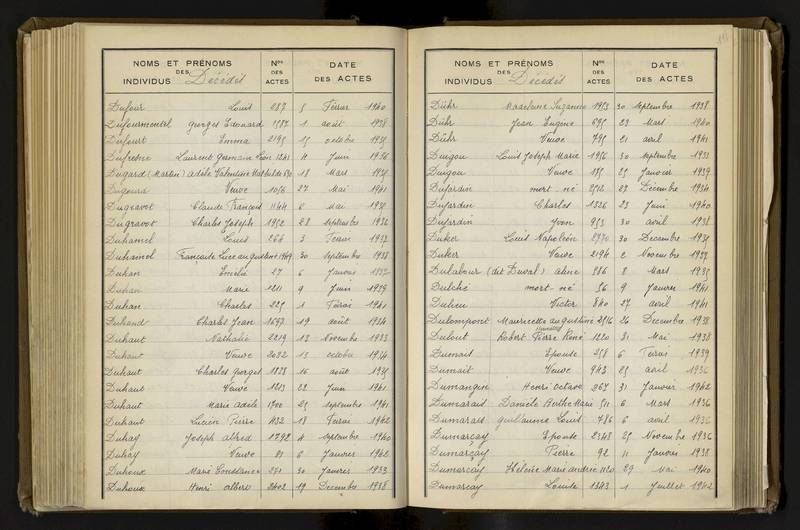 NOMS ET PRÉNOMS DES INDIVIDUS Décédés Nos DES ACTES DATE DES ACTES
Dufour Louis 287 5 Février 1940
Dufourmentel Georges Edouard 1587 1 août 1938
Dufourt Emma 2195 15 octobre 1935
Dufresne Laurent Germain Léon 1241 11 Juin 1936
Dugard (Martin) Adèle Valentine Mathilde 630 18 Mars 1935
Dugourd Veuve 1056 27 Mai 1941
Dugravot Claude François 1144 2 Mai 1935
Dugravot Charles Joseph 1952 28 septembre 1936
Duhamel Louis 266 3 Février 1933
Duhamel Françoise Luce Augustine 1949 30 septembre 1938
Duhan Emélie 27 6 Janvier 1937
Duhan Marie 1211 9 Juin 1939
Duhan Charles 225 1 Février 1941
Duhand Charles Jean 1697 19 août 1934
Duhaut Nathalie 2219 12 Novembre 1933
Duhaut Veuve 2032 13 octobre 1934
Duhaut Charles Georges 1828 16 août 1935
Duhaut Veuve 1213 22 Juin 1941
Duhaut Marie Adèle 1700 25 septembre 1941
Duhaut Lucien Pierre 432 18 Février 1942
Duhay Joseph Alfred 1792 4 septembre 1940
Duhay Veuve 81 8 Janvier 1942
Duhoux Marie Constance 271 30 Janvier 1933
Duhoux Henri Albert 2402 19 Décembre 1938
NOMS ET PRÉNOMS DES INDIVIDUS Décédés Nos DES ACTES DATE DES ACTES
Dühr Madeleine Suzanne 1953 30 septembre 1938
Dühr Jean Eugène 695 23 Mars 1940
Dühr Veuve 795 21 avril 1941
Duigou Louis Joseph Marie 1956 30 septembre 1933
Duigou Veuve 185 25 Janvier 1939
Dujardin mort-né 2512 27 Décembre 1934
Dujardin Charles 1326 23 Juin 1940
Dujardin Yvon 953 30 avril 1938
Duker Louis Napoléon 2970 30 Décembre 1935
Duker Veuve 2194 2 Novembre 1937
Dulabeur (dit Duval) Aline 686 8 Mars 1935
Dulché mort-né 56 9 Janvier 1941
Dulieu Victor 840 27 avril 1941
Dulompont Mauricette Augustine 2516 26 Décembre 1938
Dulout Robert Pierre René 1220 31 Mai 1938
Dumais Epouse 258 6 Février 1939
Dumait Veuve 943 25 avril 1936
Dumangin Henri Octave 267 31 Janvier 1942
Dumarais Danièle Berthe Marie 511 6 Mars 1936
Dumarais Guillaume Louis 786 6 avril 1936
Dumarçay Epouse 2348 25 Novembre 1936
Dumarçay Pierre 92 11 Janvier 1938
Dumarçay Hélène Marie Andrée 1120 29 Mai 1940
Dumarcay Louise 1343 1 Juillet 1942